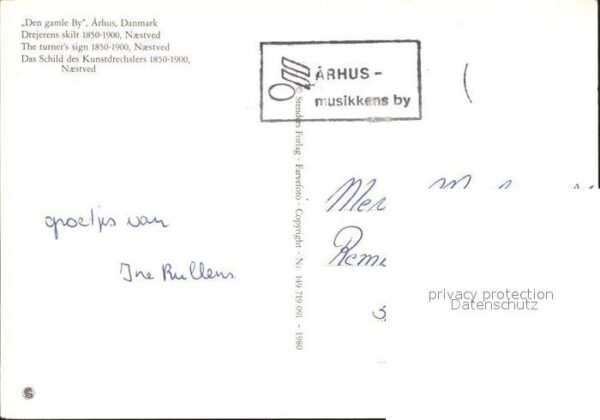 „Den gamle By”, Århus, Danmark
Drejerens skilt 1850-1900, Næstved
The turner's sign 1850-1900, Næstved
Das Schild des Kunstdrechslers 1850-1900,
Næstved
ÅRHUS -
musikkens by
© Stenders Forlag - Farvefoto - Copyright - Nr. 149 719 091 - 1980
groetjes van
Ine Rullens
privacy protection
Datenschutz